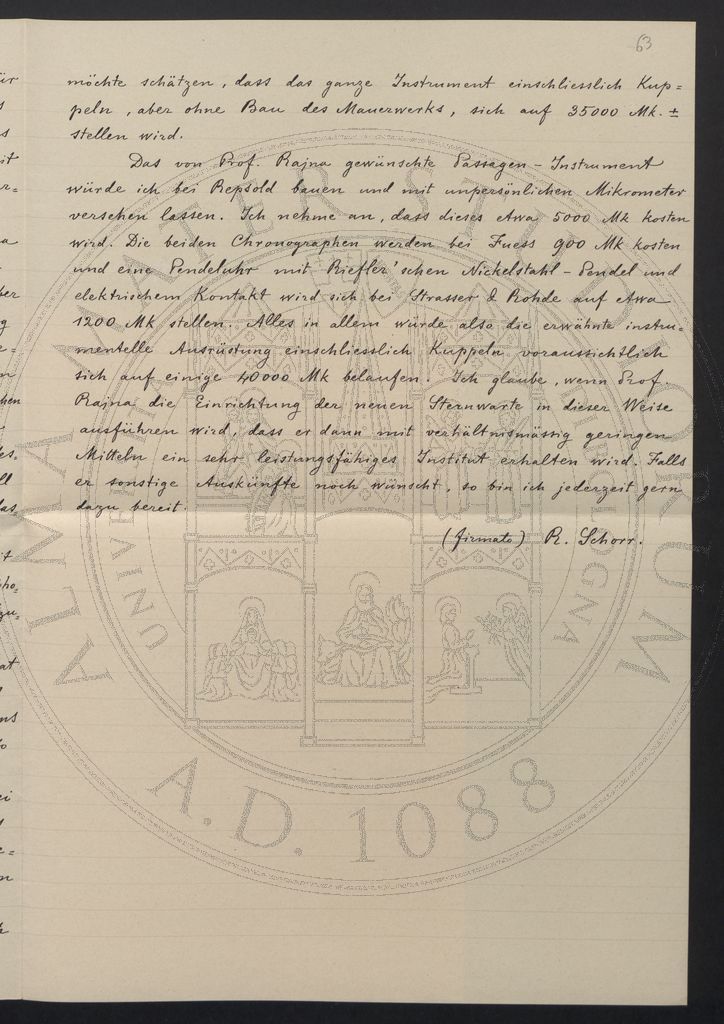 63
möchte schätzen, dass das ganze Instrument einschliesslich Kup=
peln, aber ohne Bau des Mauerwerks, sich auf 35000 Mk. ±
stellen wird.
Das von Prof. Rajna gewünschte Passagen-Instrument
würde ich bei Repsold bauen und mit unpersönlichen Mikrometer
versehen lassen. Ich nehme an, dass dieses etwa 5000 Mk kosten
wird. Die beiden Chronographen werden bei Fuess 900 Mk kosten
und eine Pendeluhr mit Riefler'schen Nickelstahl-Pendel und
elektrischem Kontakt wird sich bei Strasser & Rohde auf etwa
1200 Mk stellen. Alles in allem würde also die erwähnte instru=
mentelle Ausrüstung einschliesslich Kuppeln voraussichtlich
sich auf einige 40000 Mk belaufen. Ich glaube, wenn Prof.
Rajna die Einrichtung der neuen Sternwarte in dieser Weise
ausführen wird, dass er dann mit verhältnismässig geringen
Mitteln ein sehr leistungsfähiges Institut erhalten wird. Falls
er sonstige Auskünfte noch wünscht, so bin ich jederzeit gern
dazu bereit.
(firmato) R. Schorr.
ALMA MATER STUDIORUM
A.D. 1088